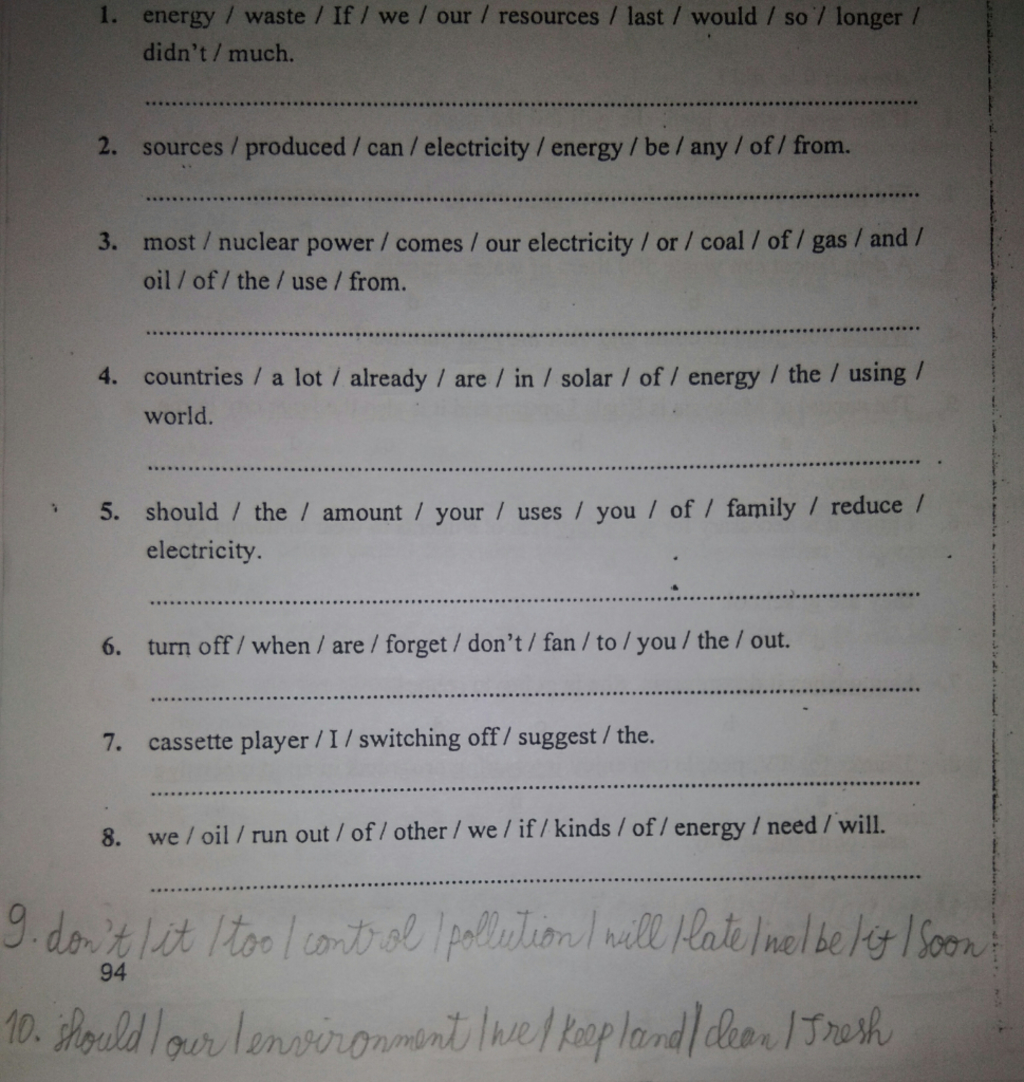 1. energy / waste / If / we / our / resources / last / would / so / longer /
didn't / much.
2. sources / produced / can / electricity / energy / be / any / of / from.
3. most / nuclear power / comes / our electricity / or / coal / of / gas / and /
oil / of / the / use / from.
4. countries / a lot / already / are / in / solar / of / energy / the / using /
world.
5. should / the / amount / your / uses / you / of / family / reduce /
electricity.
6. turn off / when / are / forget / don't / fan / to / you / the / out.
7. cassette player / I / switching off / suggest / the.
8. we / oil / run out / of / other / we / if / kinds / of / energy / need / will.
9. don't / it / too / control / pollution / will / late / we / be / if / Soon
94
10. should / our / environment / we / keep / and / clean / Fresh